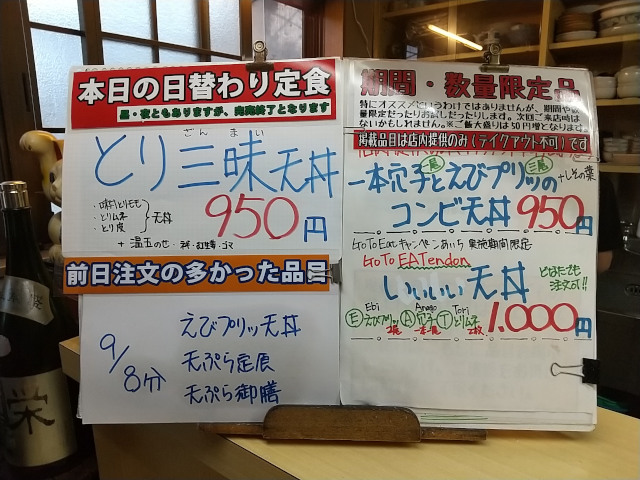 本日の日替わり定食
昼・夜ともありますが、完売終了となります
ざんまい
とり三昧天丼
・味付とりもも
・とりムネ
・とり皮
天丼
950円
+温玉のせ
前日注文の多かった品目
9/8分
えびプリッ天丼
天ぷら定食
天ぷら御膳
期間・数量限定品
特にオススメというわけではありませんが、期間や数
量限定だったりお試しだったりします。次回ご来店時は
ないかもしれません。※ご飯大盛りは50円増となります。
掲載品目は店内提供のみ(テイクアウト不可)です
一本穴子とえびプリッの
+しその葉
コンビ天丼950円
GoToEatキャンペーンあいち 実施期間限定
GoTo EATendon
いいいい天丼
どなたでも
注文OK!!
Ebi Anago Tori
Eえびプリッ2尾 A穴子一本 Tとりムネ2枚
1.000円
栄